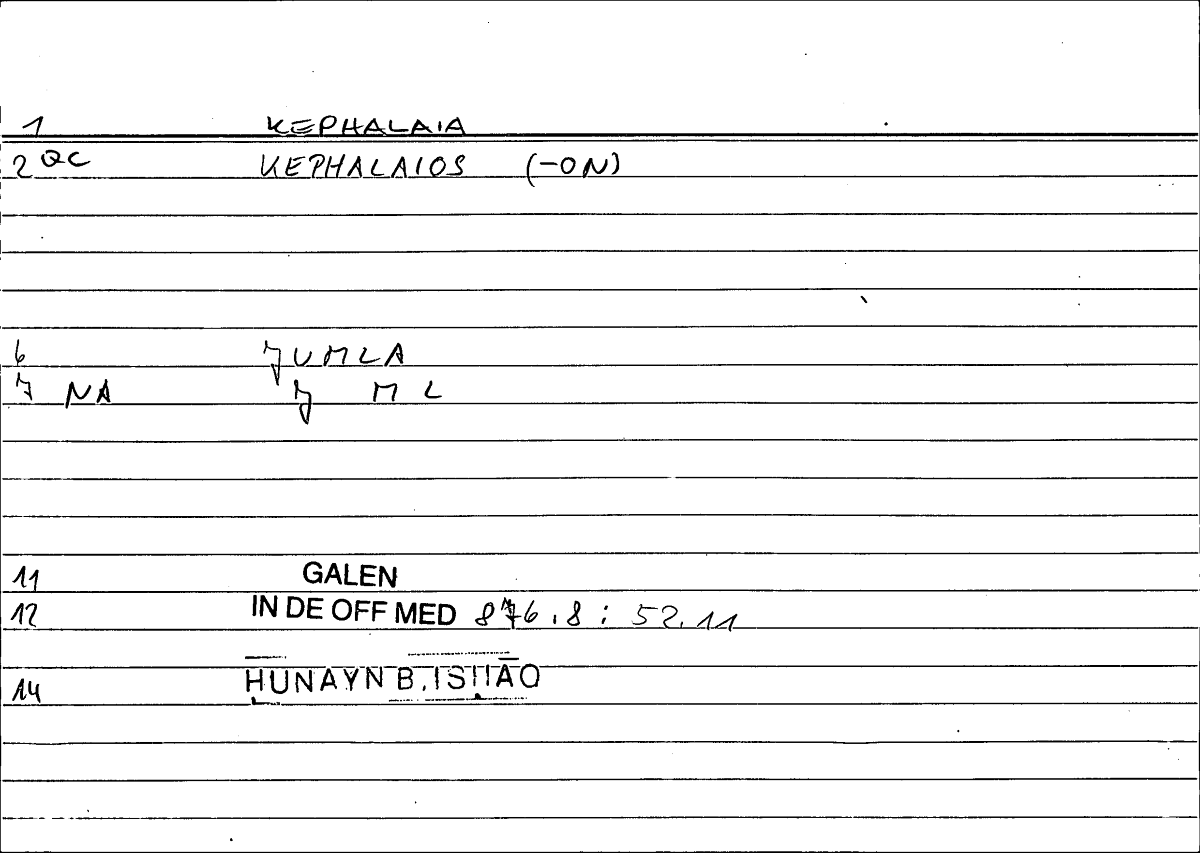 1 KEPHALAIA
2 QC KEPHALAIOS (-ON)
6 JUMLA
7 NA J M L
11 GALEN
12 IN DE OFF MED 876.8 : 52.11
14 ḤUNAYN B. ISḤĀQ